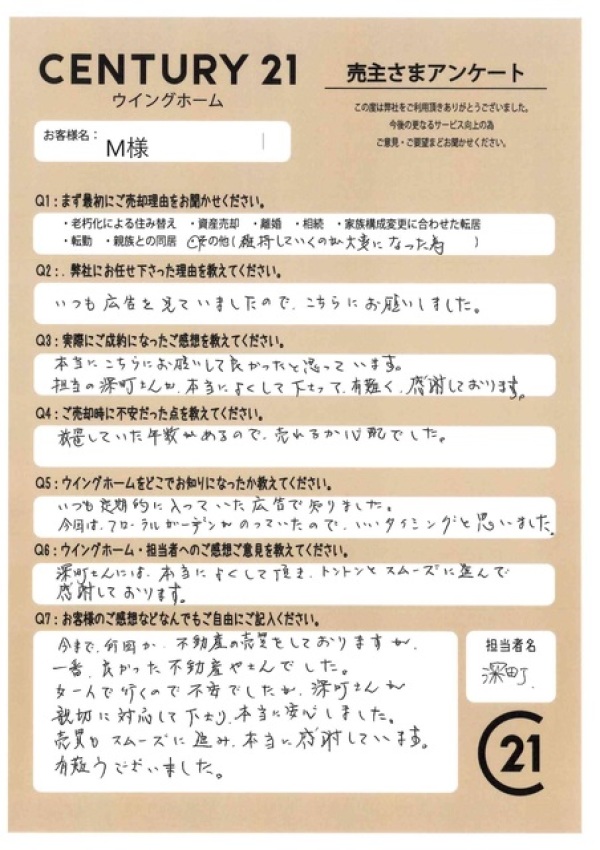 CENTURY 21
ウイングホーム
売主さまアンケート
この度は弊社をご利用頂きありがとうございました。
今後の更なるサービス向上の為
ご意見・ご要望までお聞かせください。
お客様名：
M様
Q1：まず最初にご売却理由をお聞かせください。
・老朽化による住み替え ・資産売却 ・離婚 ・相続 ・家族構成変更に合わせた転居
・転勤 ・親族との同居 ・その他(維持していくのが大変になった為 )
Q2：．弊社にお任せ下さった理由を教えてください。
いつも広告を見ていましたので、こちらにお願いしました。
Q3：実際にご成約になったご感想を教えてください。
本当にこちらにお願いして良かったと思っています。
担当の深町さんが、本当によくして下さって、有難く、感謝しております。
Q4：ご売却時に不安だった点を教えてください。
放置していた年数があるので、売れるか心配でした。
Q5：ウイングホームをどこでお知りになったか教えてください。
いつも定期的に入っていた広告で知りました。
今回は、フローラルガーデンがのっていたので、いいタイミングと思いました。
Q6：ウイングホーム・担当者へのご感想ご意見を教えてください。
深町さんには、本当によくして頂き、トントンとスムーズに進んで
感謝しております。
Q7：お客様のご感想などなんでもご自由にご記入ください。
今まで、何回か、不動産の売買をしておりますが、
一番、良かった不動産やさんでした。
女一人で行くので不安でしたが、深町さんが
親切に対応して下さり、本当に安心しました。
売買もスムーズに進み、本当に感謝しています。
有難うございました。
担当者名
深町
C21